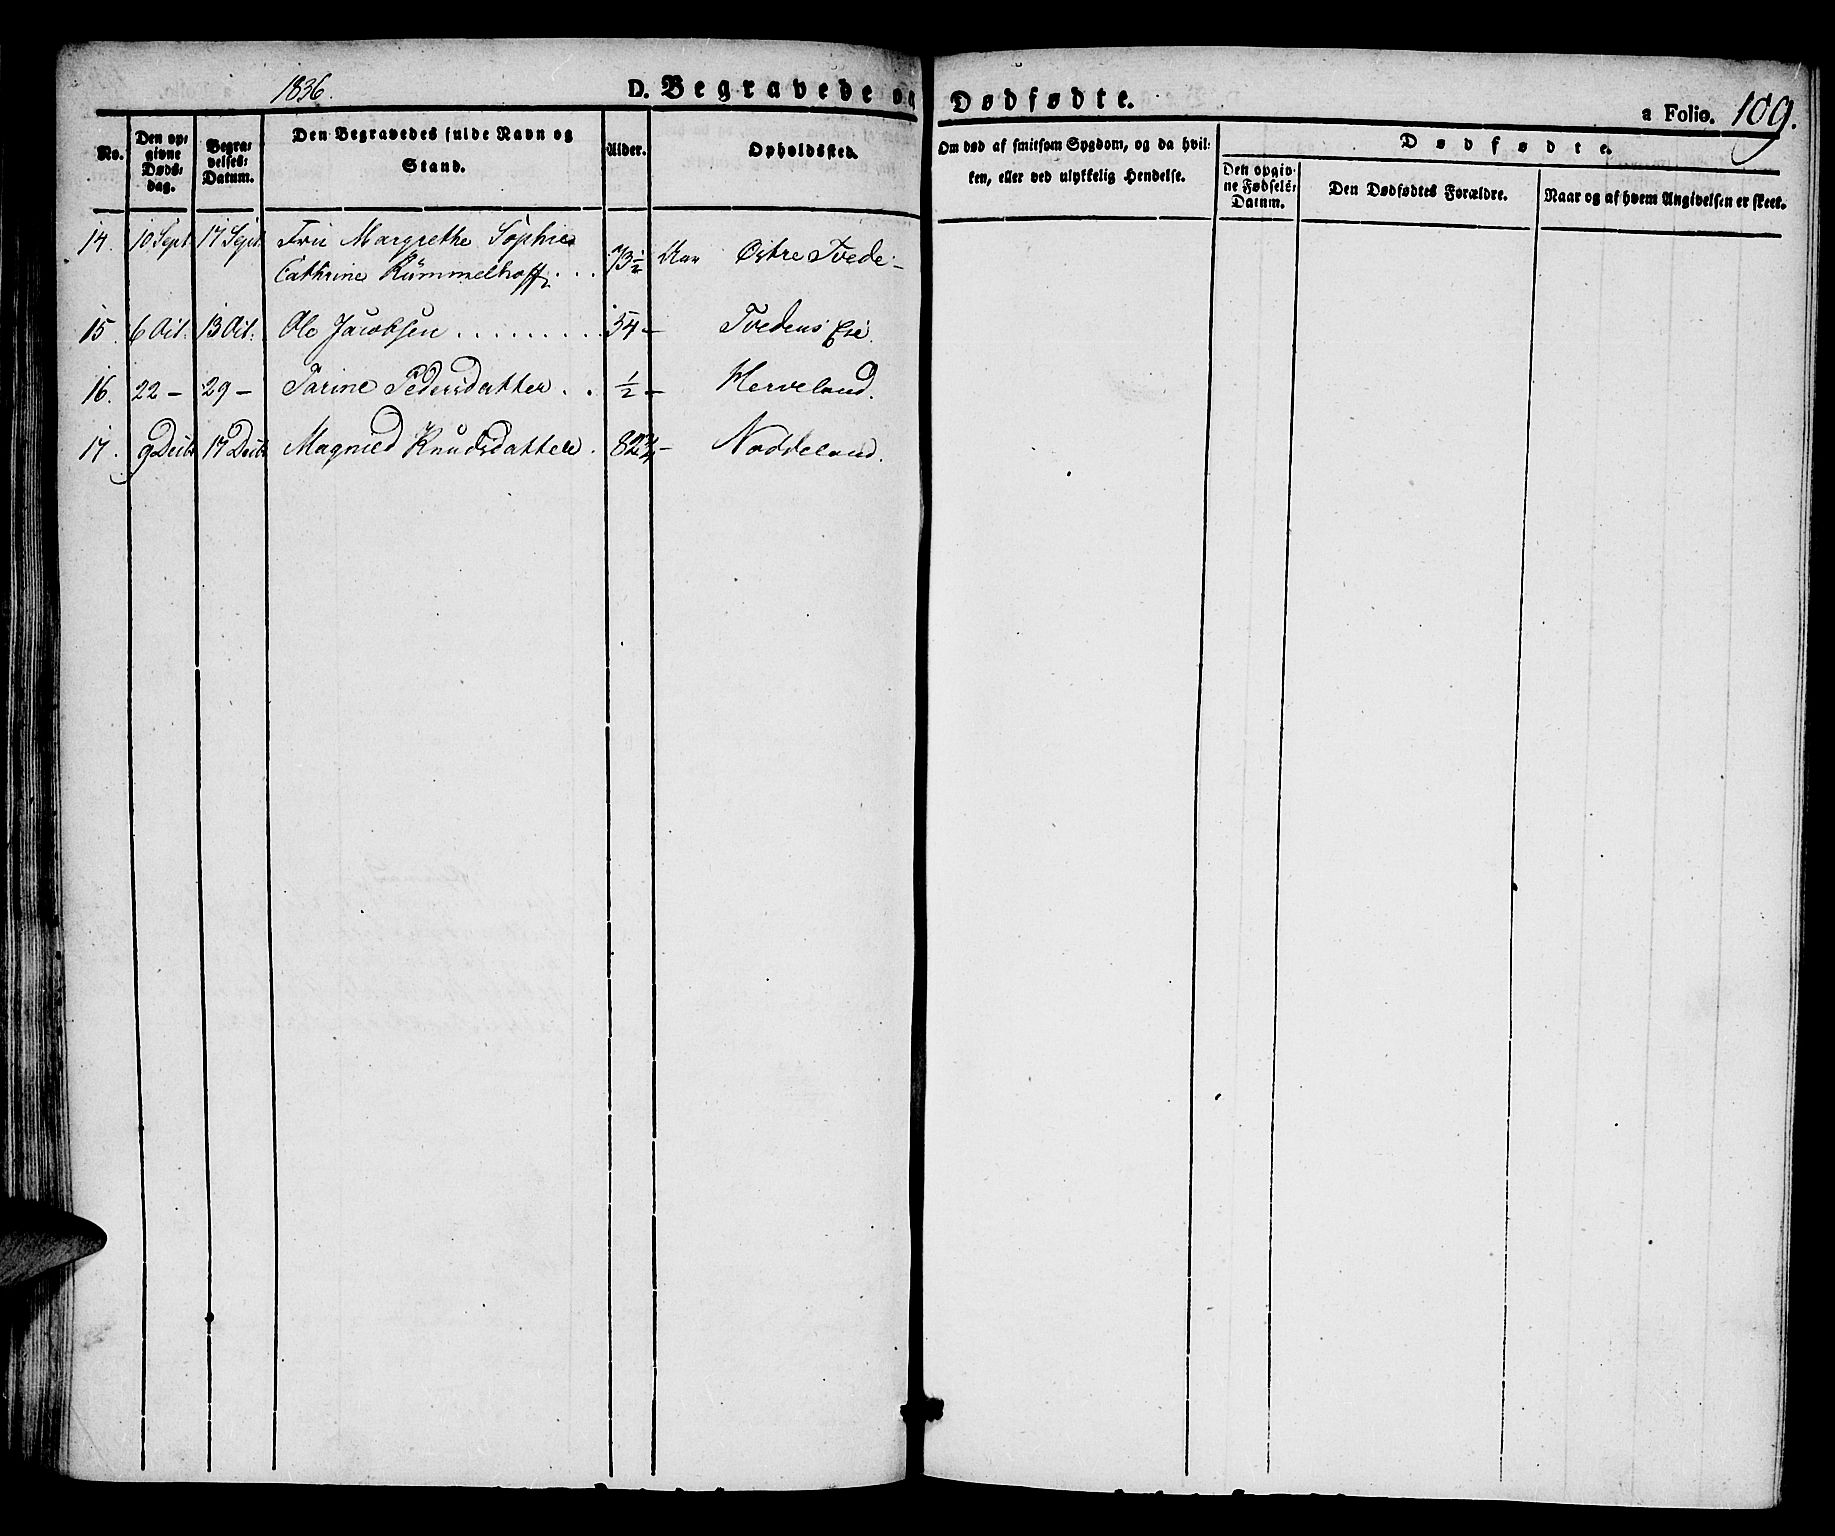 1836.
D. Begravede og Dødfødte.
a Folio. 109.
No.
Den op-
givne
Døds-
dag.
Begra-
velses-
Datum.
Den Begravedes fulde Navn og
Stand.
Alder.
Opholdssted.
Om død af smitsom Sygdom, og da hvil-
ken, eller ved ulykkelig Hendelse.
Dødfødte.
Den opgiv-
ne Fødsels-
Datum.
Den Dødfødtes Forældre.
Naar og af hvem Angivelsen er skeet.
14. 10 Sept 17 Sept. Fru Margrethe Sophie
Cathrine Rümmelhoff . . . 73½ Aar Østre Tvede
15. 6 Oct. 13 Oct. Ole Jacobsen . . . . . . . . . 54 - Tvedens Eie.
16. 22 - 29 - Tarine Pedersdatter . . ½ - Herveland.
17. 9 Decbr 17 Decbr Magnild Knudsdatter . 82¾ - Noddeland.